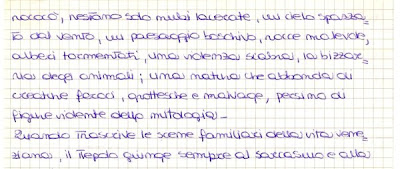 rococò, restano solo muri lacerate, un cielo spazza
to dal vento, un paesaggio boschivo, rocce malevole,
alberi tormentati, una violenza scabra, la bizzar
ria degli animali; una natura che abbonda di
creature feroci, grottesche e malvage, persino di
figure violente della mitologia -
Quando trascrive le scene familiari della vita vene
ziana, il Tiepolo giunge sempre al sarcasmo e alla